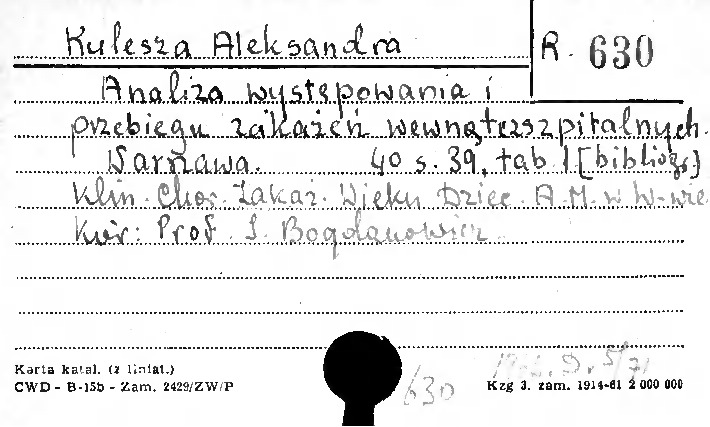 Kulesza Aleksandra
R. 630
Analiza występowania i
przebiegu zakażeń wewnątrzszpitalnych.
Warszawa. 40 s. 39, tab 1 [bibliogr.]
Klin. Chor. Zakaź. Wieku Dziec. A.M. w W-wie
Kier: Prof. J. Bogdanowicz
D. 5/71
/630
Karta katal. (z liniat.)
CWD - B-15b - Zam. 2429/ZW/P
Kzg 3. zam. 1914-61 2 000 000